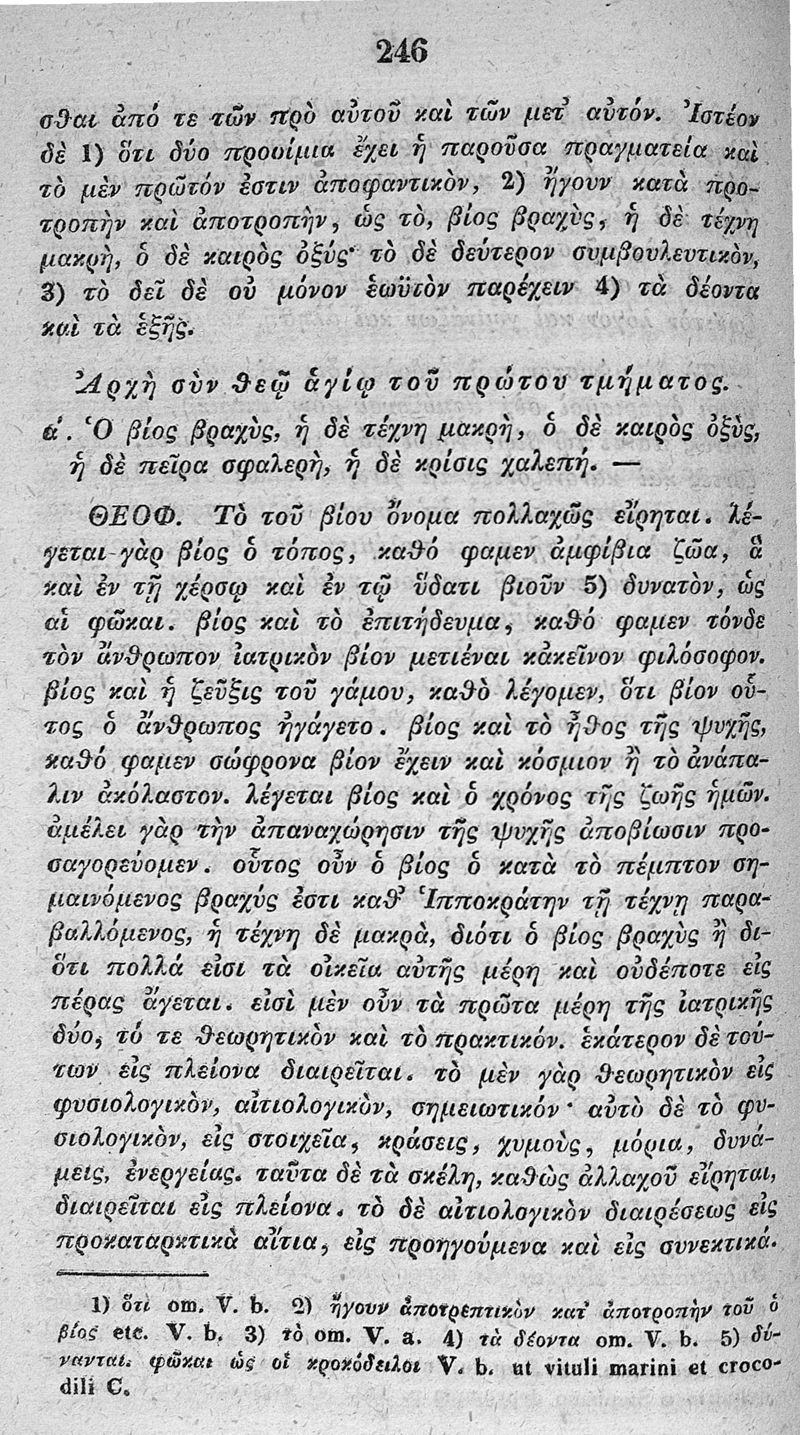 246
σθαι ἀπό τε τῶν πρὸ αὐτοῦ καὶ τῶν μετ᾽ αὐτόν. Ἰστέον
δὲ 1) ὅτι δύο προοίμια ἔχει ἡ παροῦσα πραγματεία καὶ
τὸ μὲν πρῶτόν ἐστιν ἀποφαντικὸν, 2) ἤγουν κατὰ προ-
τροπὴν καὶ ἀποτροπὴν, ὡς τὸ, βίος βραχὺς, ἡ δὲ τέχνη
μακρὴ, ὁ δὲ καιρὸς ὀξύς· τὸ δὲ δεύτερον συμβουλευτικὸν,
3) τὸ δεῖ δὲ οὐ μόνον ἑωϋτὸν παρέχειν 4) τὰ δέοντα
καὶ τὰ ἑξῆς.
Ἀρχὴ σὺν θεῷ ἁγίῳ τοῦ πρώτου τμήματος.
α΄. Ὁ βίος βραχὺς, ἡ δὲ τέχνη μακρὴ, ὁ δὲ καιρὸς ὀξὺς,
ἡ δὲ πεῖρα σφαλερὴ, ἡ δὲ κρίσις χαλεπή. —
ΘΕΟΦ. Τὸ τοῦ βίου ὄνομα πολλαχῶς εἴρηται. λέ-
γεται γὰρ βίος ὁ τόπος, καθό φαμεν ἀμφίβια ζῶα, ἃ
καὶ ἐν τῇ χέρσῳ καὶ ἐν τῷ ὕδατι βιοῦν 5) δυνατὸν, ὡς
αἱ φῶκαι. βίος καὶ τὸ ἐπιτήδευμα, καθό φαμεν τόνδε
τὸν ἄνθρωπον ἰατρικὸν βίον μετιέναι κἀκεῖνον φιλόσοφον.
βίος καὶ ἡ ζεῦξις τοῦ γάμου, καθὸ λέγομεν, ὅτι βίον οὗ-
τος ὁ ἄνθρωπος ἠγάγετο. βίος καὶ τὸ ἦθος τῆς ψυχῆς,
καθό φαμεν σώφρονα βίον ἔχειν καὶ κόσμιον ἢ τὸ ἀνάπα-
λιν ἀκόλαστον. λέγεται βίος καὶ ὁ χρόνος τῆς ζωῆς ἡμῶν.
ἀμέλει γὰρ τὴν ἀπαναχώρησιν τῆς ψυχῆς ἀποβίωσιν προ-
σαγορεύομεν. οὗτος οὖν ὁ βίος ὁ κατὰ τὸ πέμπτον ση-
μαινόμενος βραχύς ἐστι καθ᾽ Ἱπποκράτην τῇ τέχνῃ παρα-
βαλλόμενος, ἡ τέχνη δὲ μακρὰ, διότι ὁ βίος βραχὺς ἢ δι-
ότι πολλά εἰσι τὰ οἰκεῖα αὐτῆς μέρη καὶ οὐδέποτε εἰς
πέρας ἄγεται. εἰσὶ μὲν οὖν τὰ πρῶτα μέρη τῆς ἰατρικῆς
δύο, τό τε θεωρητικὸν καὶ τὸ πρακτικόν. ἑκάτερον δὲ τού-
των εἰς πλείονα διαιρεῖται. τὸ μὲν γὰρ θεωρητικὸν εἰς
φυσιολογικὸν, αἰτιολογικὸν, σημειωτικόν· αὐτὸ δὲ τὸ φυ-
σιολογικὸν, εἰς στοιχεῖα, κράσεις, χυμοὺς, μόρια, δυνά-
μεις, ἐνεργείας. ταῦτα δὲ τὰ σκέλη, καθὼς ἀλλαχοῦ εἴρηται,
διαιρεῖται εἰς πλείονα. τὸ δὲ αἰτιολογικὸν διαιρέσεως εἰς
προκαταρκτικὰ αἴτια, εἰς προηγούμενα καὶ εἰς συνεκτικά.
1) ὅτι om. V. b. 2) ἤγουν ἀποτρεπτικὸν κατ᾽ ἀποτροπὴν τοῦ ὁ
βίος etc. V. b. 3) τὸ om. V. a. 4) τὰ δέοντα om. V. b. 5) δύ-
νανται. φῶκαι ὡς οἱ κροκόδειλοι V. b. ut vituli marini et croco-
dili C.